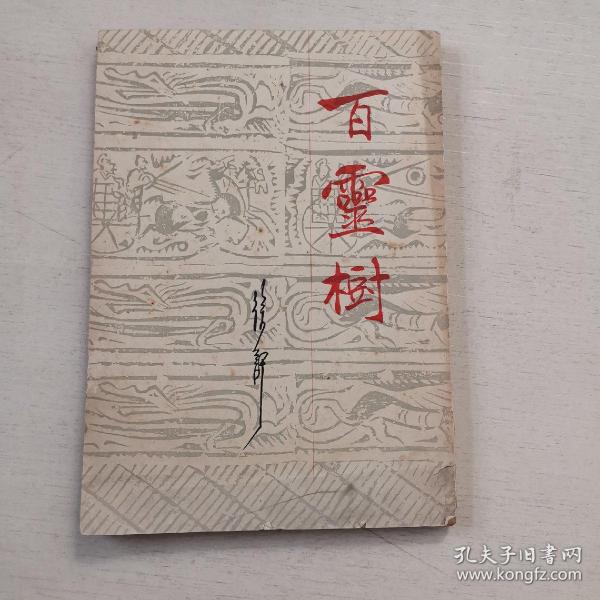 百靈樹
徐訏
孔夫子旧书网
www.kongfz.com